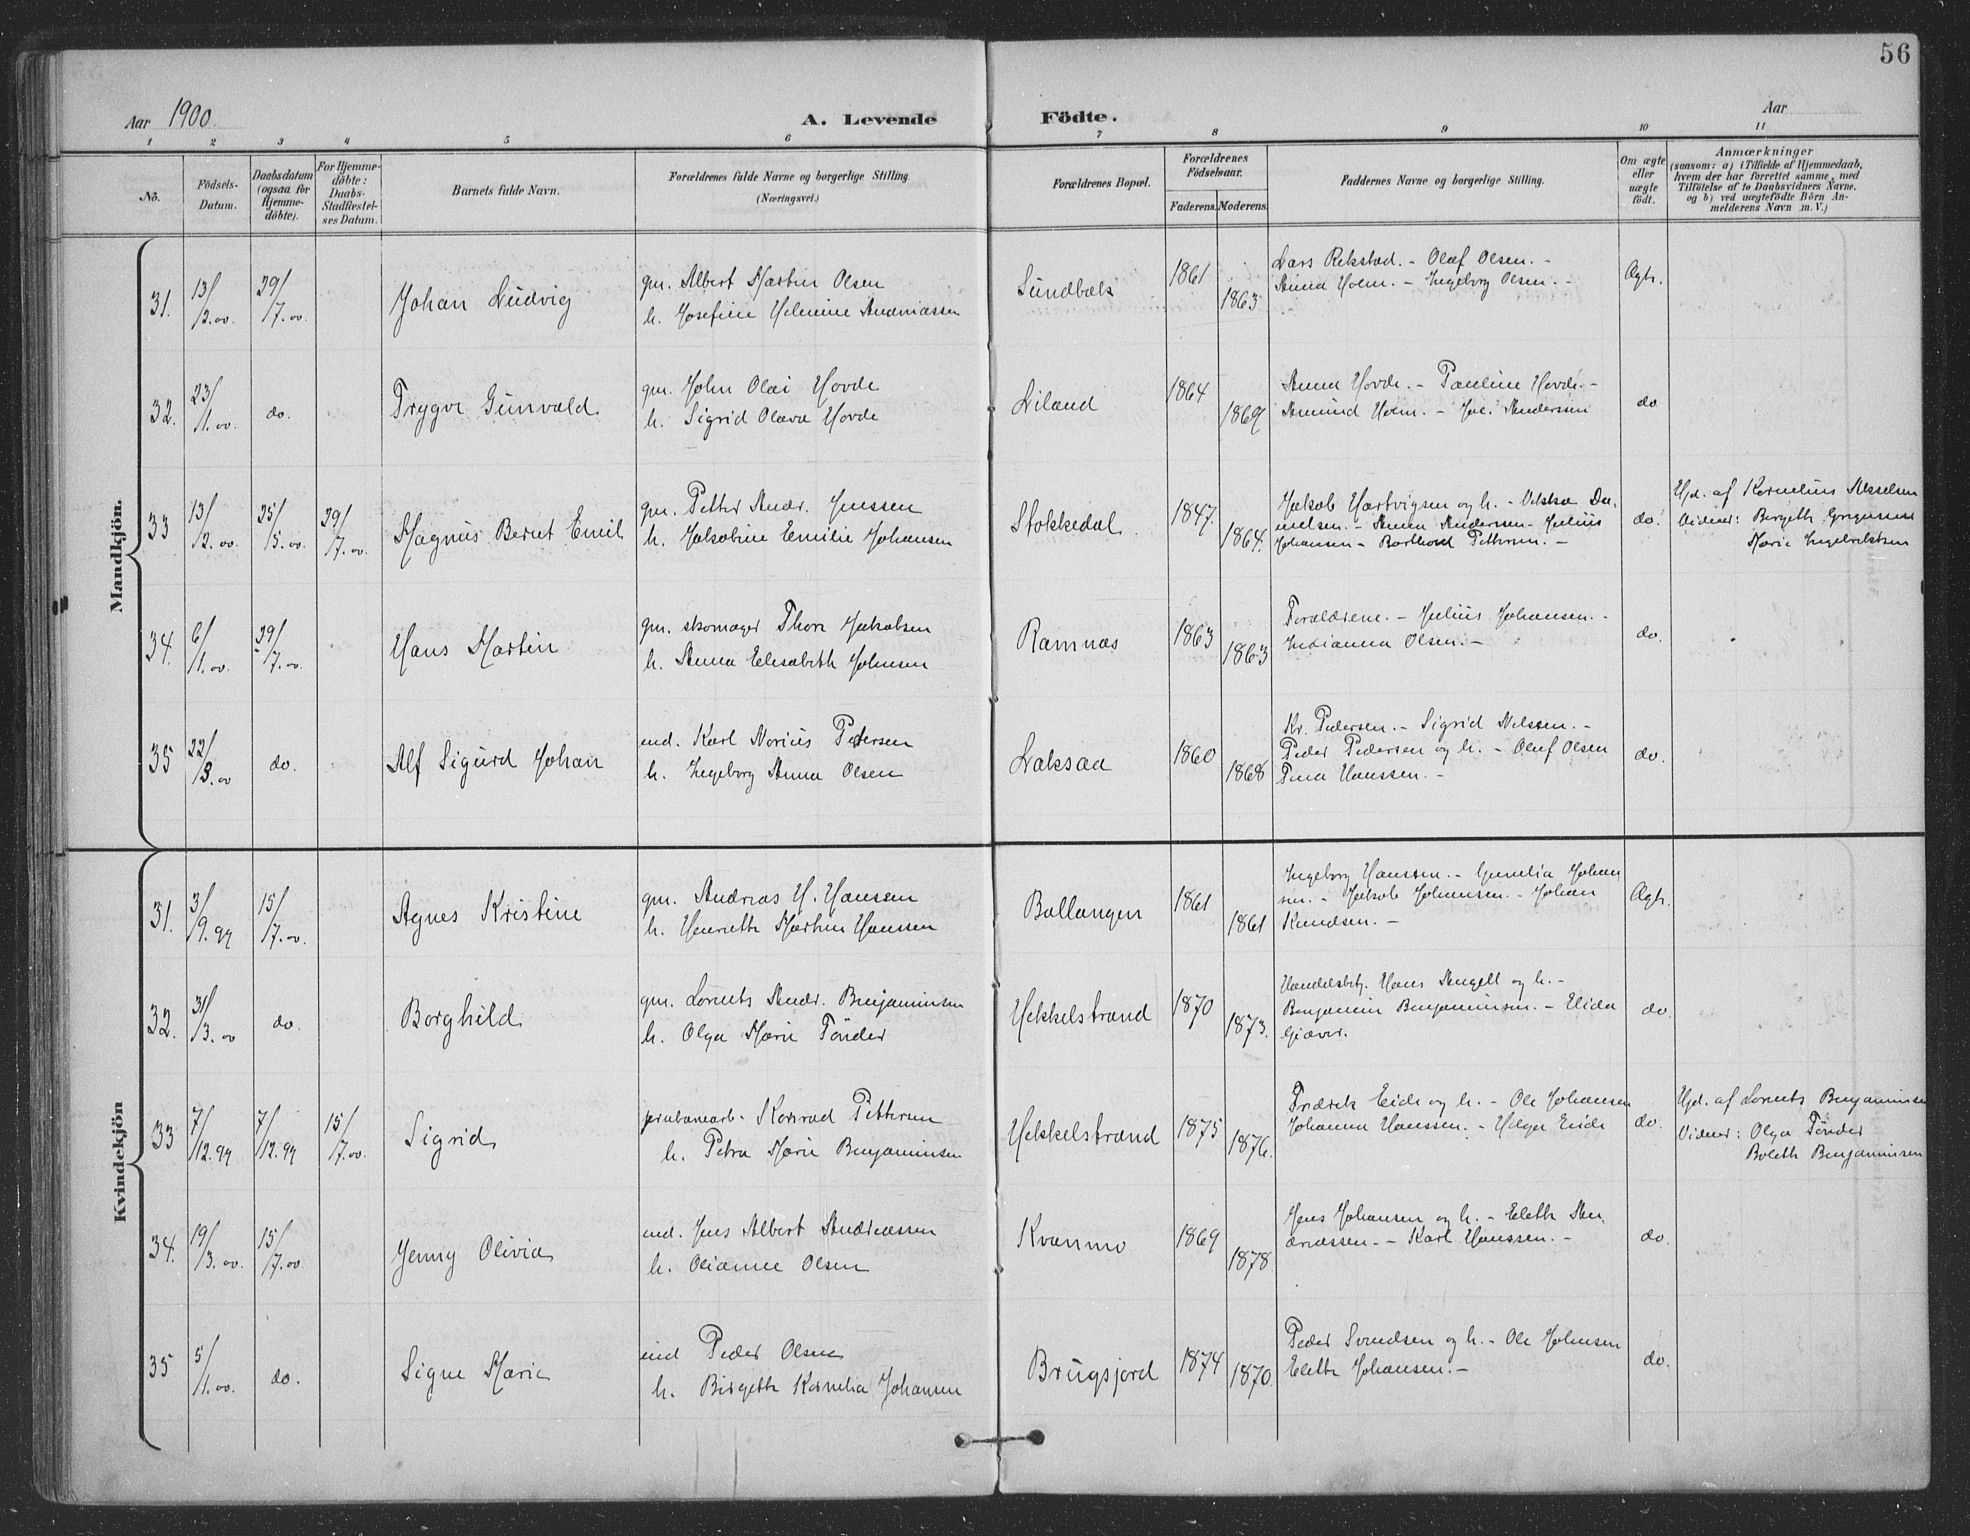 56
Aar 1900.
A. Levende Födte.
Aar
1 2 3 4 5 6 7 8 9 10 11
No.
Födsels-Datum.
Daabsdatum (ogsaa for Hjemme-döbte).
For Hjemme-döbte: Daabs-Stadfæstel-ses Datum.
Barnets fulde Navn.
Forældrenes fulde Navne og borgerlige Stilling (Næringsvei.)
Forældrenes Bopæl.
Forældrenes Födselsaar.
Faderens. Moderens.
Faddernes Navne og borgerlige Stilling.
Om ægte eller uægte födt.
Anmærkninger
(saasom: a) i Tilfælde af Hjemmedaab,
hvem der har forrettet samme, med
Tilföielse af to Daabsvidners Navne,
og b) ved uægtefödte Börn An-
melderens Navn m. V.)
Mandkjön.
31. 13/2.00. 29/7.00 Johan Ludvig
gm. Albert Martin Olsen
h. Josefine Helmine Andreassen
Sundbæk 1861 1863
Lars Rekstad. - Olaf Olsen. -
Anna Holm. - Ingeborg Olsen. -
Ægte.
32. 23/1.00. do. Trygve Gunvald
gm. John Olai Hovde
h. Sigrid Olava Hovde
Liland 1864 1869
Anna Hovde. - Pauline Hovde. -
Amund Holm. - Joh. Andersen
do
33 13/2.00. 25/5.00 29/7.00. Magnus Bernt Emil
gm. Petter Andr. Jenssen
h. Jakobine Emilie Johansen
Stokkedal 1847. 1864.
Jakob Hartvigsen og h. - Da-
nielsen. - Anna Andersen - Julius
Johansen - Pettersen. -
do.
Hjd. af Kornelius Akselsen
Vidner: Bergeth
Marie Ingebriktsen
34. 6/1.00. 29/7.00. Hans Martin
gm. skomager Thor Jakobsen
h. Anna Elisabeth Johnsen
Ramnæs 1863 1863
Forældrene. - Julius Johansen. -
Indianna Olsen. -
do.
35 22/3.00 do. Alf Sigurd Johan
ind. Karl Norius Pedersen
h. Ingeborg Anna Olsen
Laksaa 1860 1868
Kr. Pedersen. - Sigrid Nilssen. -
Peder Pedersen og h. - Oluf Olsen
Tina Hanssen. -
do.
Kvindekjön
31. 3/9.99 15/7.00. Agnes Kristine
gm. Andreas H. Hanssen
h. Henriette Martine Hanssen
Ballangen 1861 1861
Ingeborg Hanssen. - Gunelia Johan-
sen. - Jakob Johansen. - Johan
Knudsen. -
Ægte.
32. 31/3.00 do. Borghild
gm. Lorents Andr. Benjaminsen
h. Olga Marie Tönder
Hekkelstrand 1870 1873.
Handelsbtj. Hans Angell og h. -
Benjamin Benjaminsen. - Elida
Giæver.
do
33 7/12.99 7/12.99 15/7.00. Sigrid
jernbanearb. Konrad Pettersen
h. Petra Marie Benjaminsen
Hekkelstrand 1875 1876.
Fredrik Eide og h. - Ole Johansen
Johanna Hanssen. - Helga Eide
do.
Hjd. af Lorents Benjaminsen
Vidner: Olga Tönder
Boleth Benjaminsen
34. 19/3.00. 15/7.00 Jenny Olivia
ind. Jens Albert Andreassen
h. Olianne Olsen
Kvanmo 1869 1878
Jens Johansen og h. - Eleth An-
dreassen. - Karl Hanssen. -
do.
35 5/1.00. do. Signe Marie
ind Peder Olsen
h. Birgeth Kornelia Johansen
Brugsjord 1874 1870.
Peder Svendsen og h. - Ole Johnsen
Eleth Johansen. -
do.